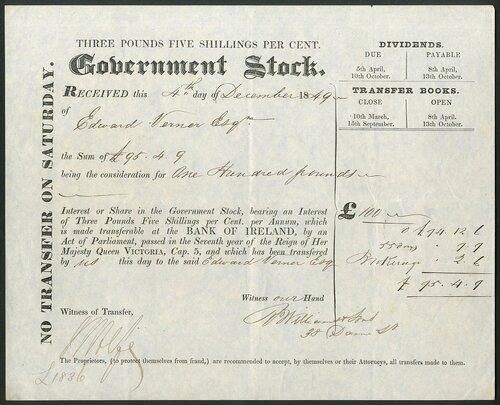 NO TRANSFER ON SATURDAY.
THREE POUNDS FIVE SHILLINGS PER CENT.
Government Stock.
DIVIDENDS.
DUE PAYABLE
5th April, 8th April,
10th October. 13th October.
TRANSFER BOOKS.
CLOSE OPEN
10th March, 8th April,
15th September. 13th October.
RECEIVED this 4th day of December 1849
of
Edward Verner Esqre
the Sum of £95.4.9
being the consideration for One Hundred pounds
Interest or Share in the Government Stock, bearing an Interest
of Three Pounds Five Shillings per Cent. per Annum, which
is made transferable at the BANK OF IRELAND, by
an Act of Parliament, passed in the Seventh year of the Reign of Her
Majesty Queen VICTORIA, Cap. 5, and which has been transferred
by us this day to the said Edward Verner Esq
£ 100
94.12.6
9.9
2.6
£ 95.4.9
Witness our Hand
Witness of Transfer,
38 Dame St
The Proprietors, (to protect themselves from fraud,) are recommended to accept, by themselves or their Attorneys, all transfers made to them.
£1836